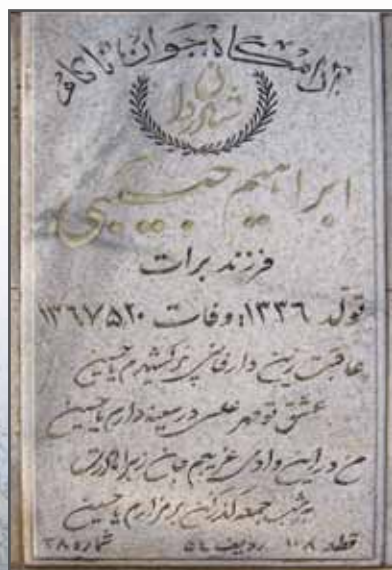 آرامگاه جوان ناکام
شادروان
ابراهیم حبیبی
فرزند برات
تولد ۱۳۳۶ وفات ۱۳۶۷٫۵٫۲۰
عاقبت زین دار فانی پر کشیدم یا حسین
عشق تو مهر علی در سینه دارم یا حسین
من در این وادی غریبم جان زهرا مادرت
هر شب جمعه گذر کن بر مزارم یا حسین
قطعه ۱۰۸ ردیف ۵۱ شماره ۳۸